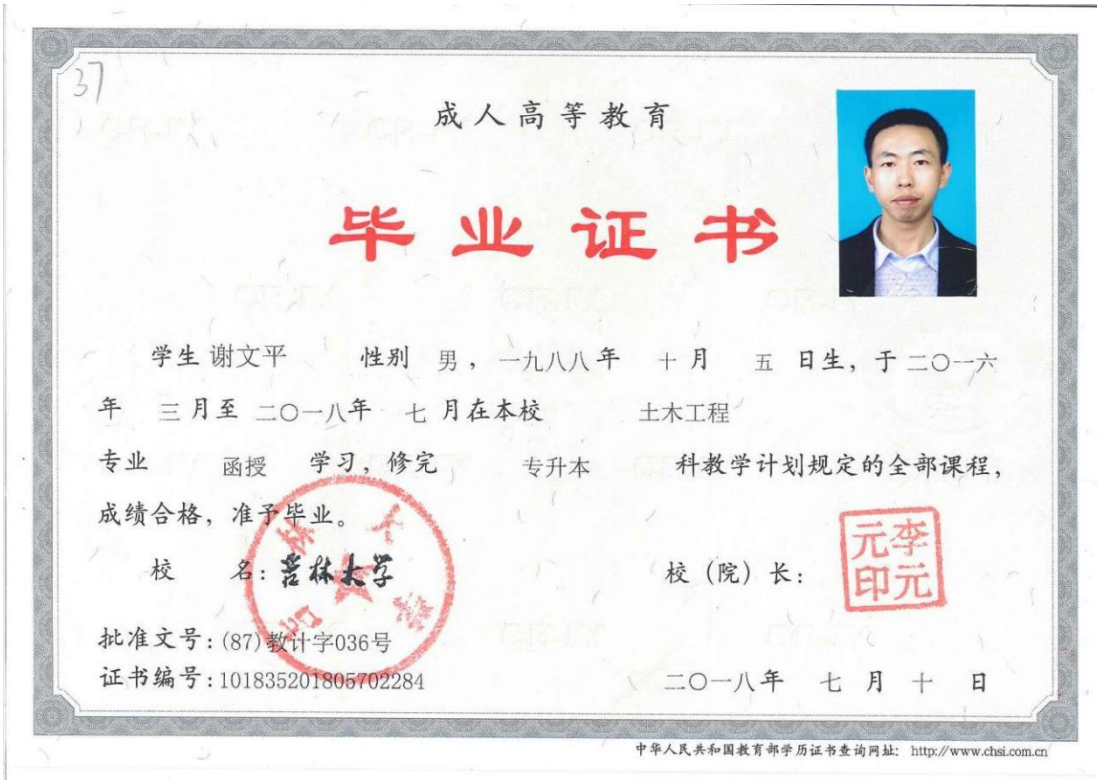 37
成人高等教育
毕业证书
学生 谢文平 性别 男，一九八八年 十月 五 日生，于 二〇一六
年 三月至 二〇一八年 七 月在本校 土木工程
专业 函授 学习，修完 专升本 科教学计划规定的全部课程，
成绩合格，准予毕业。
校 名：吉林大学 校（院）长：
李元元印
批准文号：(87)教计字036号
证书编号：101835201805702284 二〇一八年 七 月 十 日
中华人民共和国教育部学历证书查询网址： http://www.chsi.com.cn